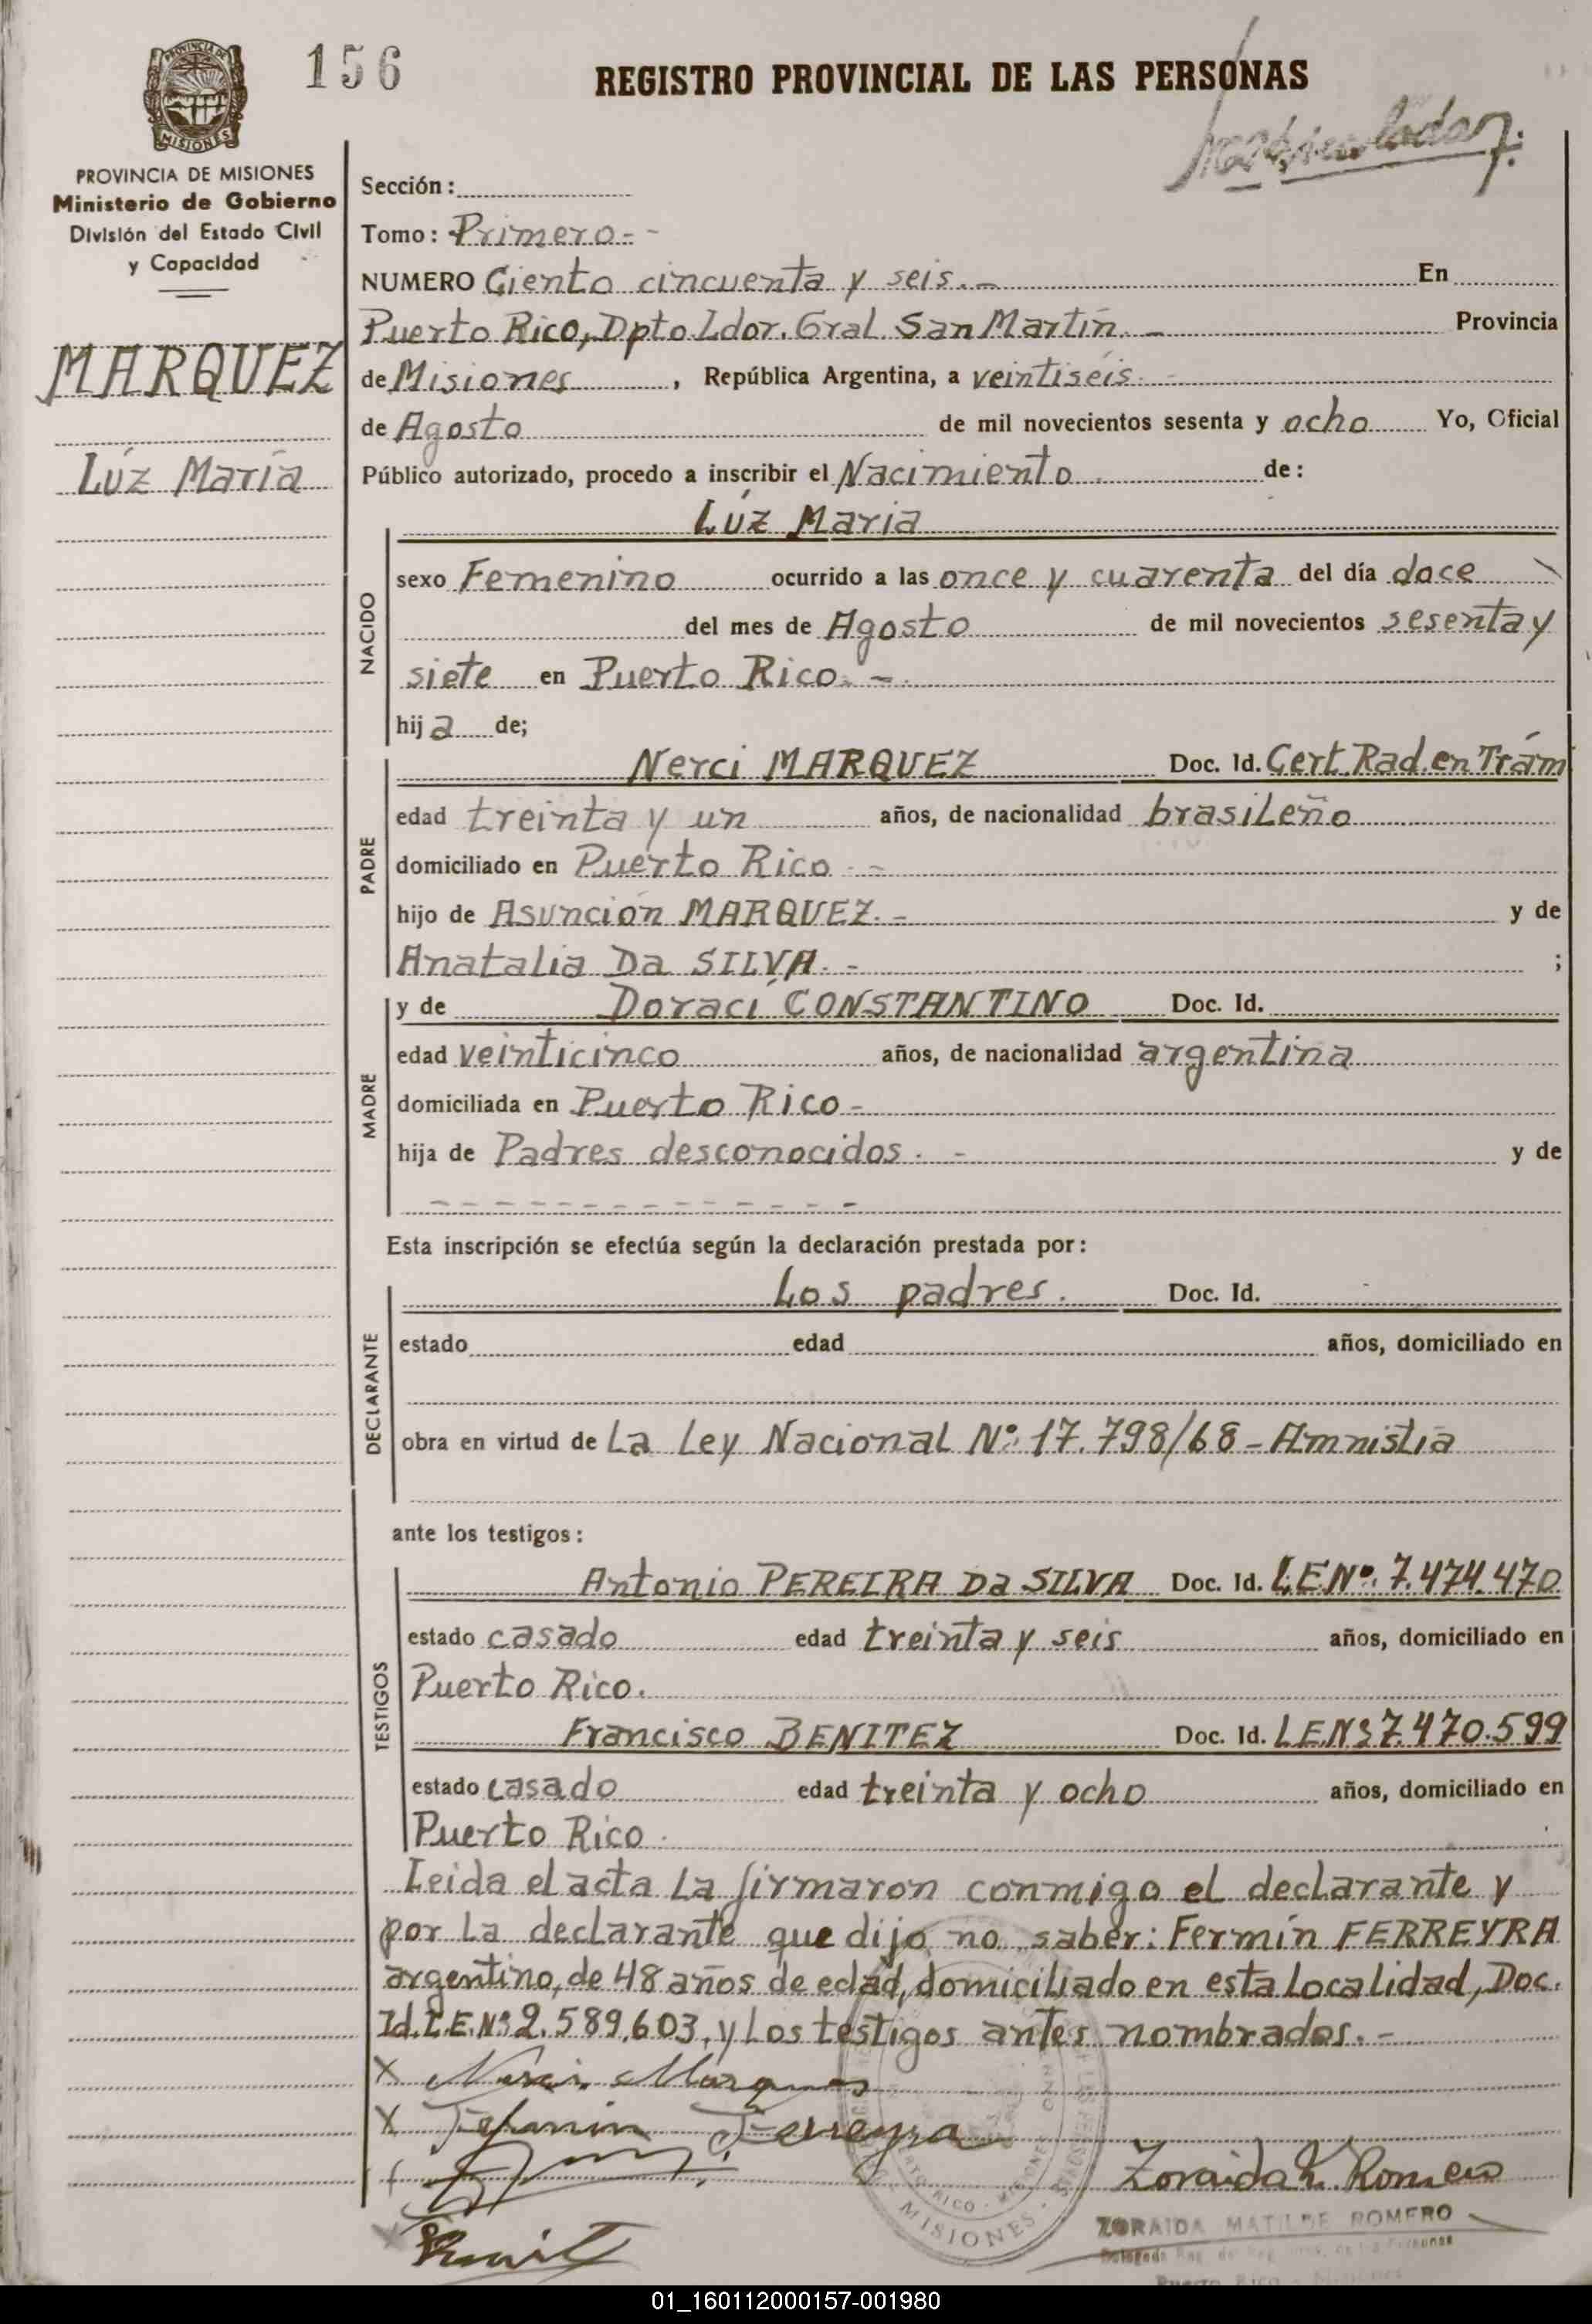 156
REGISTRO PROVINCIAL DE LAS PERSONAS
PROVINCIA DE
MISIONES
PROVINCIA DE MISIONES
Ministerio de Gobierno
División del Estado Civil
y Capacidad
MARQUEZ
Lúz María
Sección:
Tomo: Primero.- -
NUMERO Ciento cincuenta y seis.- En
Puerto Rico, Dpto Ldor. Gral San Martín. - Provincia
de Misiones, República Argentina, a veintiséis
de Agosto de mil novecientos sesenta y ocho Yo, Oficial
Público autorizado, procedo a inscribir el Nacimiento de:
Lúz Maria
NACIDO
sexo Femenino ocurrido a las once y cuarenta del día doce
del mes de Agosto de mil novecientos sesenta y
siete en Puerto Rico. -
hija de;
PADRE
Nerci MARQUEZ Doc. Id. Cert Rad. en Trám
edad treinta y un años, de nacionalidad brasileño
domiciliado en Puerto Rico -
hijo de Asunción MARQUEZ. - y de
Anatalia Da SILVA. - ;
MADRE
y de Doraci CONSTANTINO Doc. Id.
edad veinticinco años, de nacionalidad argentina
domiciliada en Puerto Rico -
hija de Padres desconocidos. - y de
- - - - - - - - - - - -
Esta inscripción se efectúa según la declaración prestada por:
DECLARANTE
Los padres. Doc. Id.
estado edad años, domiciliado en
obra en virtud de La Ley Nacional Nº 17.798/68 - Amnistía
ante los testigos:
TESTIGOS
Antonio PEREIRA Da SILVA Doc. Id. L.E.Nº. 7.474.470
estado casado edad treinta y seis años, domiciliado en
Puerto Rico.
Francisco BENITEZ Doc. Id. L.E.Nº 7.470.599
estado casado edad treinta y ocho años, domiciliado en
Puerto Rico.
Leida el acta la firmaron conmigo el declarante y
por la declarante que dijo no saber: Fermín FERREYRA
argentino, de 48 años de edad, domiciliado en esta localidad, Doc.
Id. L.E. Nº 2.589.603, y los testigos antes nombrados. -
X Nerci Marques
X Fermin Ferreyra
Zoraida M. Romero
MISIONES
ZORAIDA MATILDE ROMERO
Puerto Rico - Misiones
01_160112000157-001980